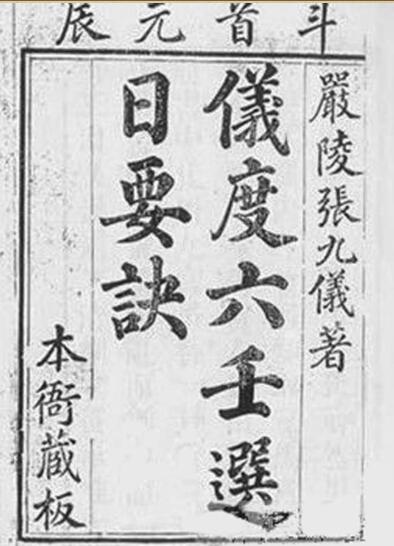 斗首元辰
嚴陵張九儀著
儀度六壬選
日要訣
本衙蔵板